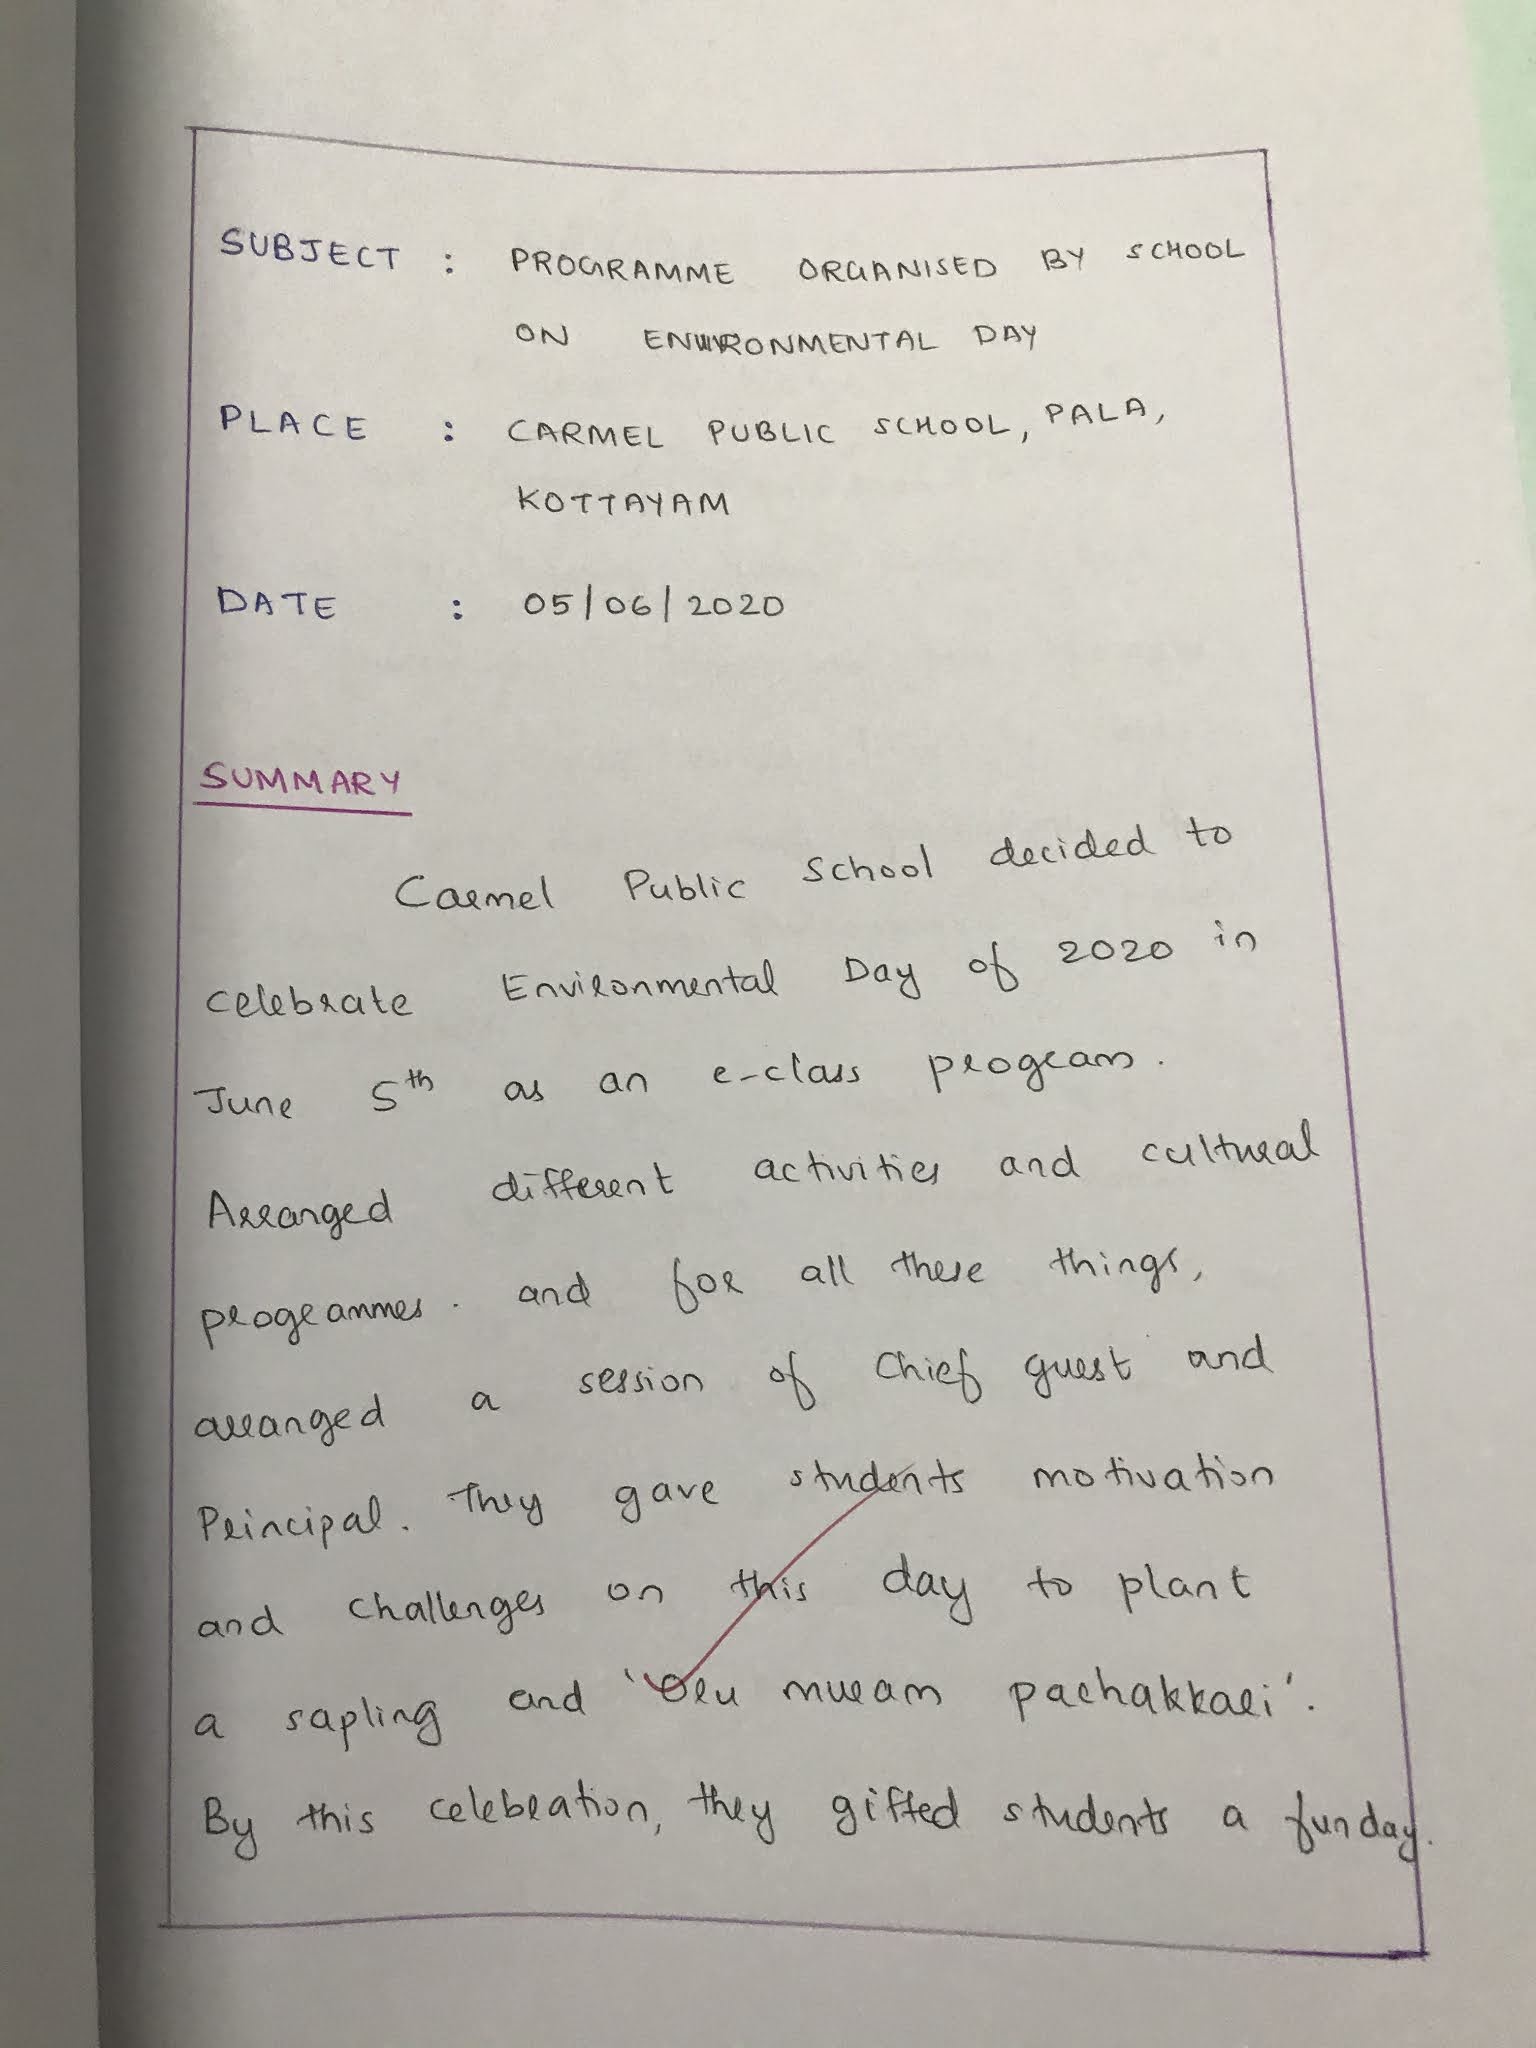 SUBJECT : PROGRAMME ORGANISED BY SCHOOL
ON ENVIRONMENTAL DAY
PLACE : CARMEL PUBLIC SCHOOL, PALA,
KOTTAYAM
DATE : 05/06/2020
SUMMARY
Carmel Public School decided to
celebrate Environmental Day of 2020 in
June 5th as an e-class program.
Arranged different activities and cultural
programmes. and for all these things,
arranged a session of Chief guest and
Principal. They gave students motivation
and challenges on this day to plant
a sapling and 'Oru muram pachakkari'.
By this celebration, they gifted students a funday.